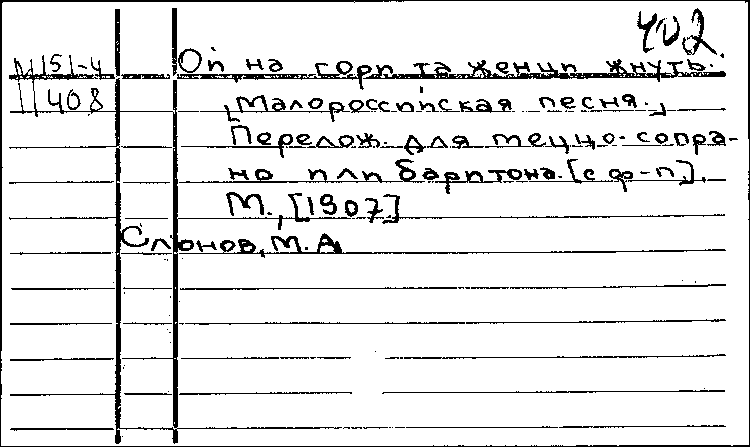 402
М 151-4
408
Ой, на гори та женци жнуть.
[Малороссийская песня.]
Перелож. для меццо-сопра-
но или баритона. [с ф-п].
М., [1907]
Слонов, М. А.